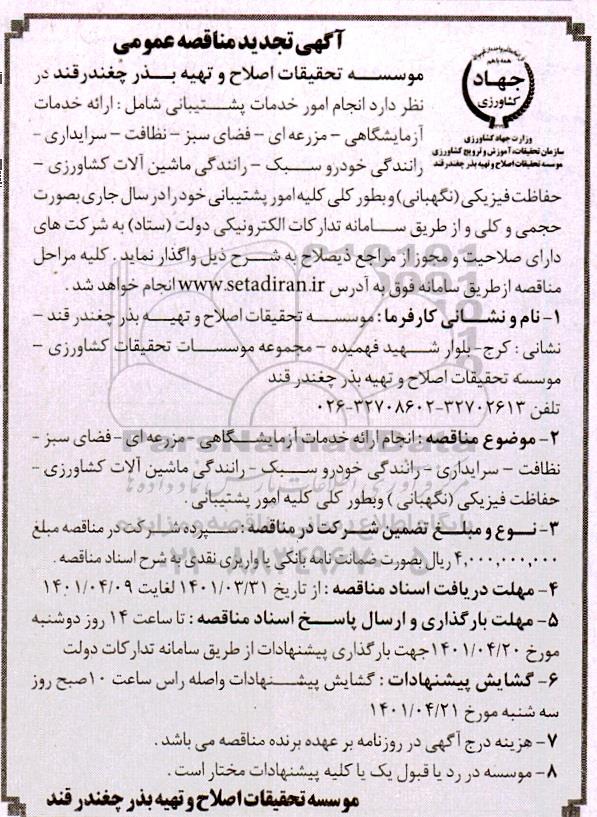 آگهی تجدید مناقصه عمومی
همه با هم
جهاد
کشاورزی
وزارت جهاد کشاورزی
سازمان تحقیقات، آموزش و ترویج کشاورزی
موسسه تحقیقات اصلاح و تهیه بذر چغندر قند
موسســه تحقیقات اصلاح و تهیه بــذر چغندرقند در
نظر دارد انجام امور خدمات پشــتیبانی شامل : ارائه خدمات
آزمایشگاهی - مزرعه ای - فضای سبز - نظافت - سرایداری -
رانندگی خودرو سـبک - رانندگی ماشین آلات کشاورزی -
حفاظت فیزیکی (نگهبانی) و بطور کلی کلیه امور پشتیبانی خود را در سال جاری بصورت
حجمی و کلی و از طریق ســامانه تدارکات الکترونیکی دولت (ستاد) به شرکت های
دارای صلاحیت و مجوز از مراجع ذیصلاح به شــرح ذیل واگذار نماید . کلیه مراحل
مناقصه از طریق سامانه فوق به آدرس www.setadiran.ir انجام خواهد شد .
۱- نام و نشــانی کارفرما : موسســه تحقیقات اصلاح و تهیــه بذر چغندر قند -
نشانی : کرج- بلوار شــهید فهمیده - مجموعه موسســات تحقیقات کشاورزی -
موسسه تحقیقات اصلاح و تهیه بذر چغندر قند
تلفن ۳۲۷۰۲۶۱۳-۳۲۷۰۸۶۰۲-۰۲۶
۲- موضوع مناقصه : انجام ارائه خدمات آزمایشــگاهی - مزرعه ای - فضای سبز -
نظافت - سرایداری - رانندگی خودرو ســبک - رانندگی ماشین آلات کشاورزی -
حفاظت فیزیکی (نگهبانی) و بطور کلی کلیه امور پشتیبانی .
۳- نــوع و مبلــغ تضمین شــرکت در مناقصه : ســپرده شــرکت در مناقصه مبلغ
۴,۰۰۰,۰۰۰,۰۰۰ ریال بصورت ضمانت نامه بانکی یا واریزی نقدی به شرح اسناد مناقصه .
۴- مهلت دریافت اسناد مناقصه : از تاریخ ۱۴۰۱/۰۳/۳۱ لغایت ۱۴۰۱/۰۴/۰۹
۵- مهلت بارگذاری و ارسال پاســخ اسناد مناقصه : تا ساعت ۱۴ روز دوشنبه
مورخ ۱۴۰۱/۰۴/۲۰ جهت بارگذاری پیشنهادات از طریق سامانه تدارکات دولت
۶- گشایش پیشنهادات : گشایش پیشــنهادات واصله راس ساعت ۱۰ صبح روز
سه شنبه مورخ ۱۴۰۱/۰۴/۲۱
۷- هزینه درج آگهی در روزنامه بر عهده برنده مناقصه می باشد .
۸- موسسه در رد یا قبول یک یا کلیه پیشنهادات مختار است .
موسسه تحقیقات اصلاح و تهیه بذر چغندر قند
ParsNamadData